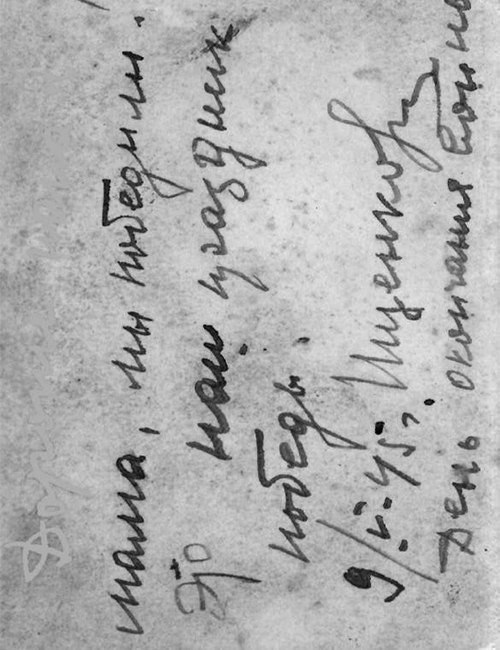 мама, мы победили.
Это наш праздник
победы.
9/V-45г. Ищенков
День окончания войны